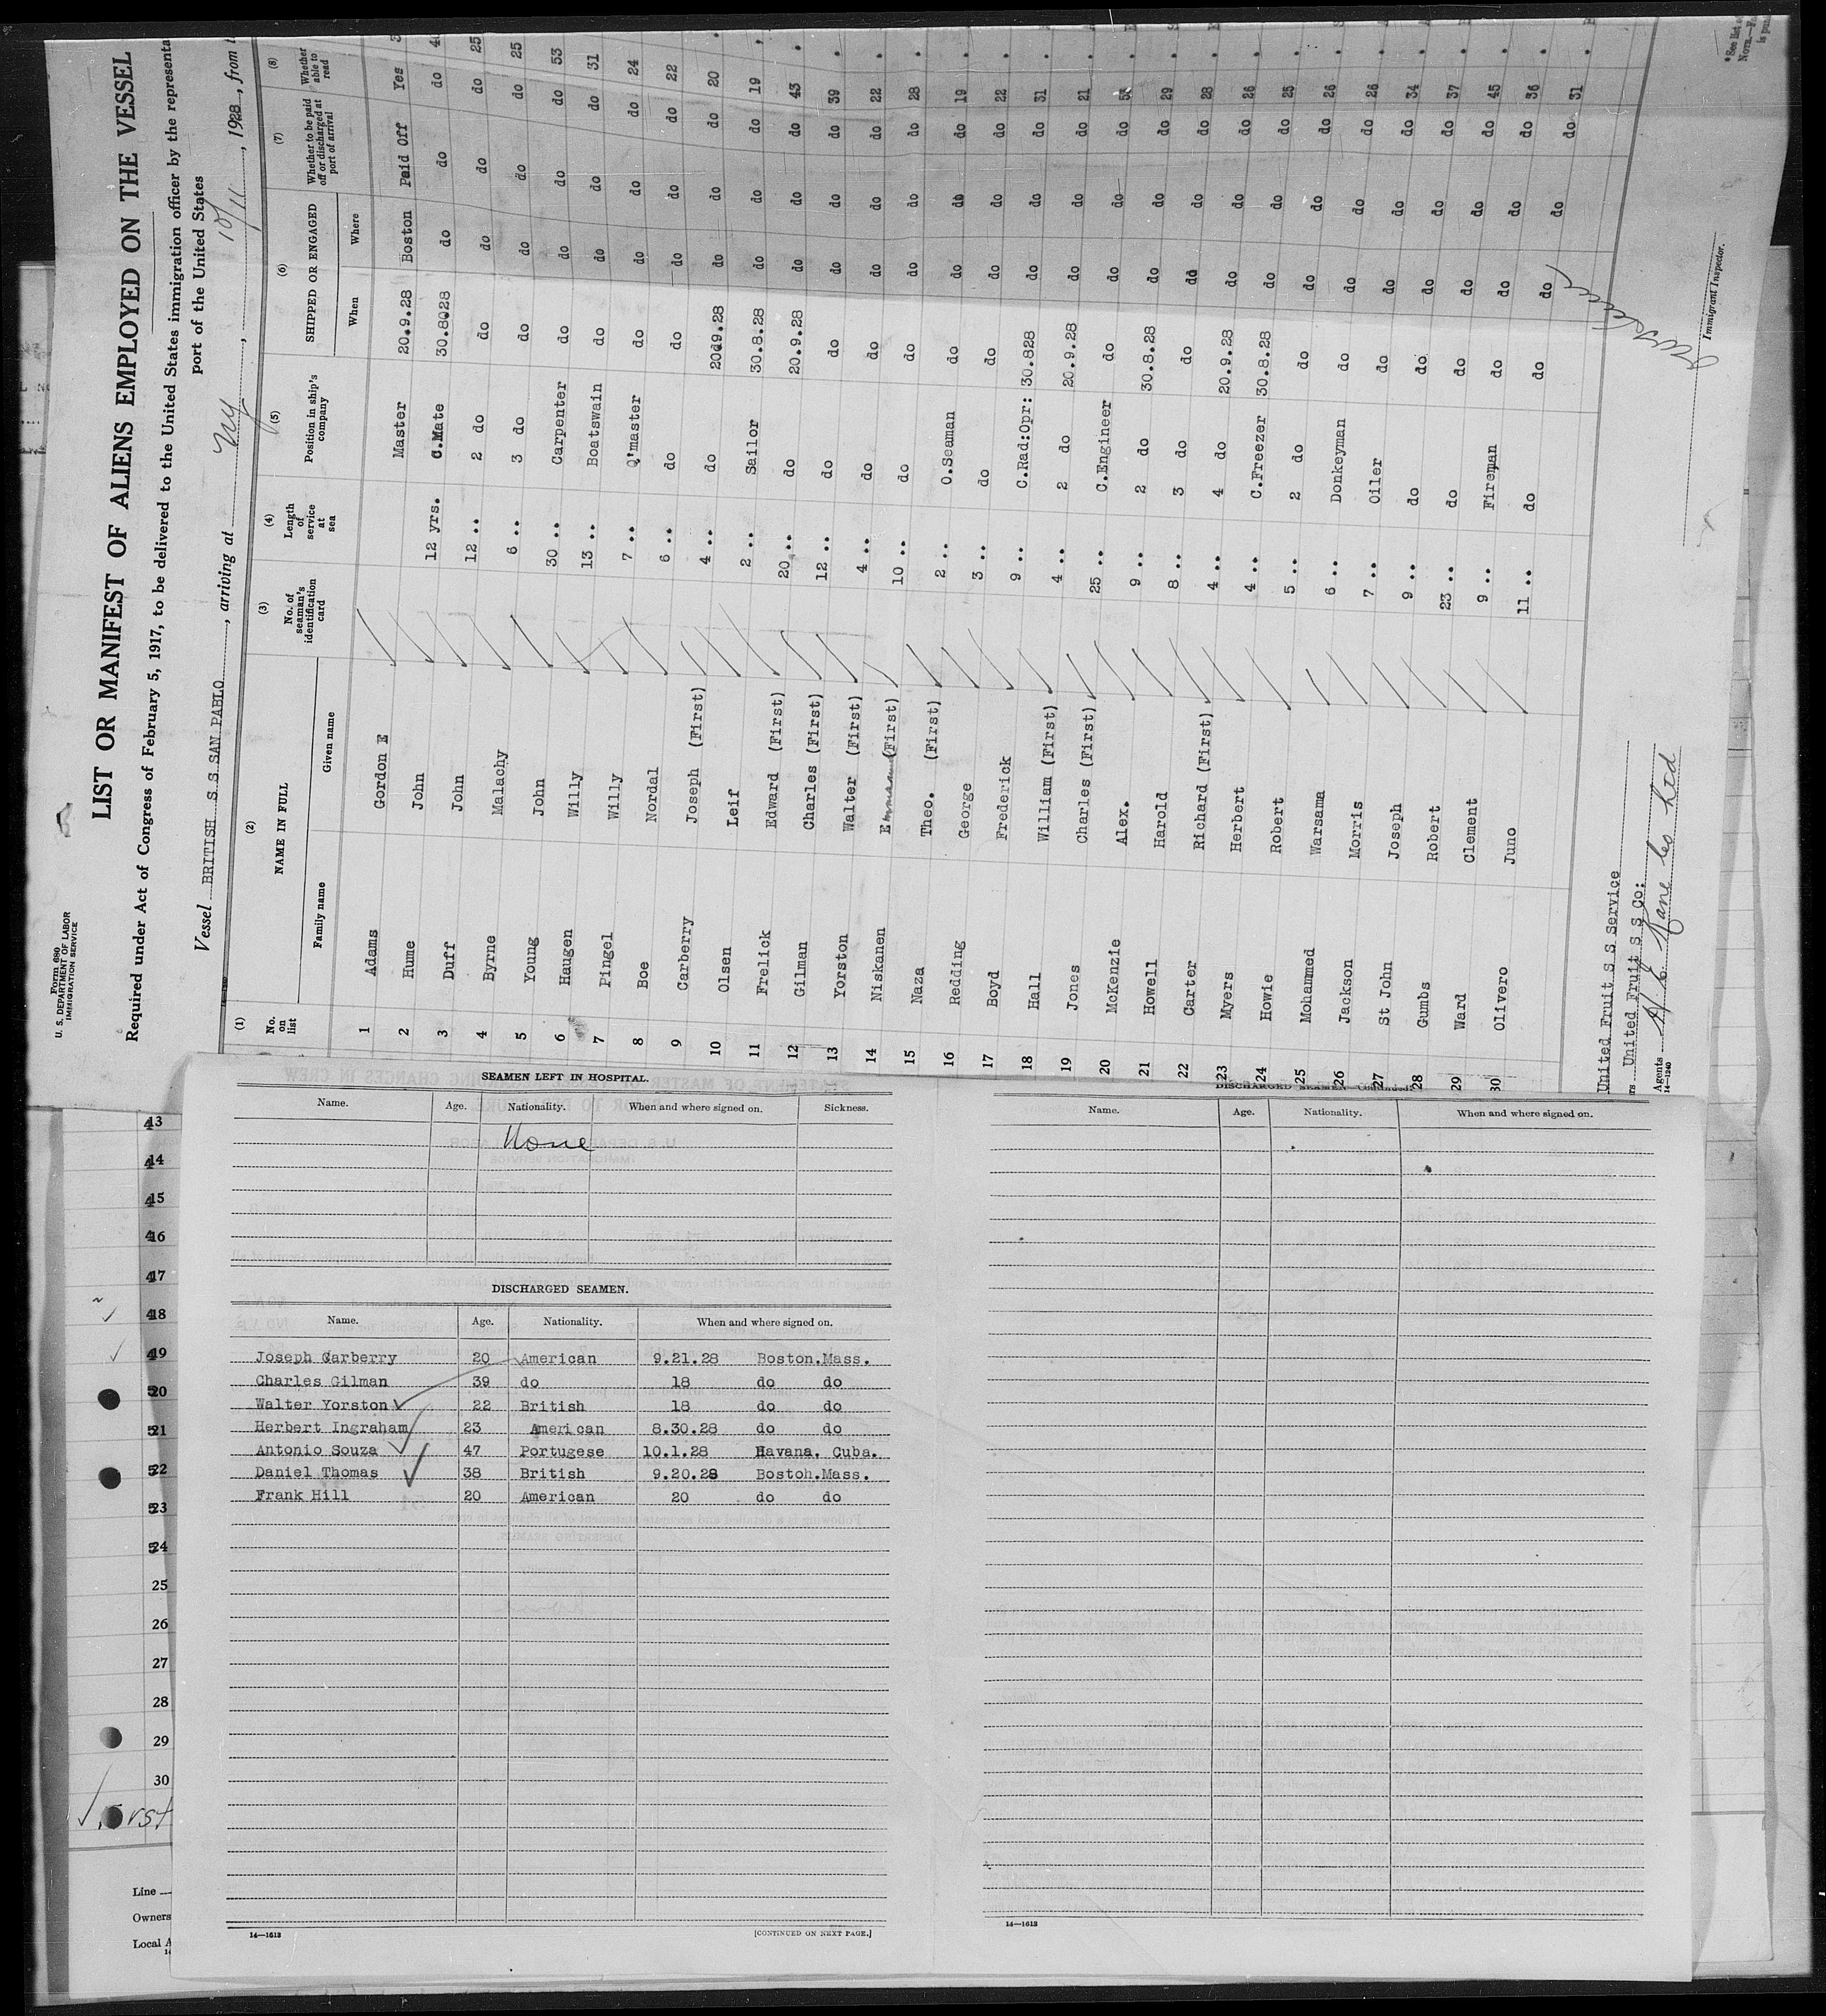 Form 680
U. S. DEPARTMENT OF LABOR
IMMIGRATION SERVICE
LIST OR MANIFEST OF ALIENS EMPLOYED ON THE VESSEL
Required under Act of Congress of February 5, 1917, to be delivered to the United States immigration officer by the representa
port of the United States
Vessel BRITISH S S SAN PABLO, arriving at NY, 10/11, 1928, from
(1) (2) (3) (4) (5) (6) (7) (8)
No. on list NAME IN FULL No. of seaman's identification card Length of service at sea Position in ship's company SHIPPED OR ENGAGED Whether to be paid off or discharged at port of arrival Whether able to read
Family name Given name When Where
1 Adams Gordon E Master 20.9.28 Boston Paid Off Yes
2 Hume John 12 yrs. C.Mate 30.8028 do do do
3 Duff John 12 .. 2 do do do do do 25
4 Byrne Malachy 6 .. 3 do do do do do 25
5 Young John 30 .. Carpenter do do do do 53
6 Haugen Willy 13 .. Boatswain do do do do 31
7 Pingel Willy 7 .. Q'master do do do do 24
8 Boe Nordal 6 .. do do do do do 22
9 Carberry Joseph (First) 4 .. do 20.9.28 do do do 20
10 Olsen Leif 2 .. Sailor 30.8.28 do do do 19
11 Frelick Edward (First) 20 .. do 20.9.28 do do do 43
12 Gilman Charles (First) 12 .. do do do do do 39
13 Yorston Walter (First) 4 .. do do do do do 22
14 Niskanen (First) 10 .. do do do do do 28
15 Naza Theo. (First) 2 .. O.Seaman do do do do 19
16 Redding George 3 .. do do do do do 22
17 Boyd Frederick 9 .. C.Rad:Opr: 30.828 do do do 31
18 Hall William (First) 4 .. 2 do 20.9.28 do do do 21
19 Jones Charles (First) 25 .. C.Engineer do do do do
20 McKenzie Alex. 9 .. 2 do 30.8.28 do do do 29
21 Howell Harold 8 .. 3 do do do do do 28
22 Carter Richard (First) 4 .. 4 do 20.9.28 do do do 26
23 Myers Herbert 4 .. C.Freezer 30.8.28 do do do 25
24 Howie Robert 5 .. 2 do do do do do 26
25 Mohammed Warsama 6 .. Donkeyman do do do do 26
26 Jackson Morris 7 .. Oiler do do do do 34
27 St John Joseph 9 .. do do do do do 37
28 Gumbs Robert 23 .. do do do do do 45
29 Ward Clement 9 .. Fireman do do do do 36
30 Olivero Juno 11 .. do do do do do 31
United Fruit S S Service
rs United Fruit S S Co:
Agents
14-1240
Immigrant Inspector.
*See list
NOTE.—F
is pu
SEAMEN LEFT IN HOSPITAL.
Name. Age. Nationality. When and where signed on. Sickness.
None
DISCHARGED SEAMEN.
Name. Age. Nationality. When and where signed on.
Joseph Carberry 20 American 9.21.28 Boston.Mass.
Charles Gilman 39 do 18 do do
Walter Yorston 22 British 18 do do
Herbert Ingraham 23 American 8.30.28 do do
Antonio Souza 47 Portugese 10.1.28 Havana. Cuba.
Daniel Thomas 38 British 9.20.28 Bostoh.Mass.
Frank Hill 20 American 20 do do
14—1613
[CONTINUED ON NEXT PAGE.]
DISCHARGED SEAMEN—Continued.
Name. Age. Nationality. When and where signed on.
14—1613
13
14
15
16
17
18
19
20
21
22
23
24
25
26
27
28
29
30
Line
Owners
Local A